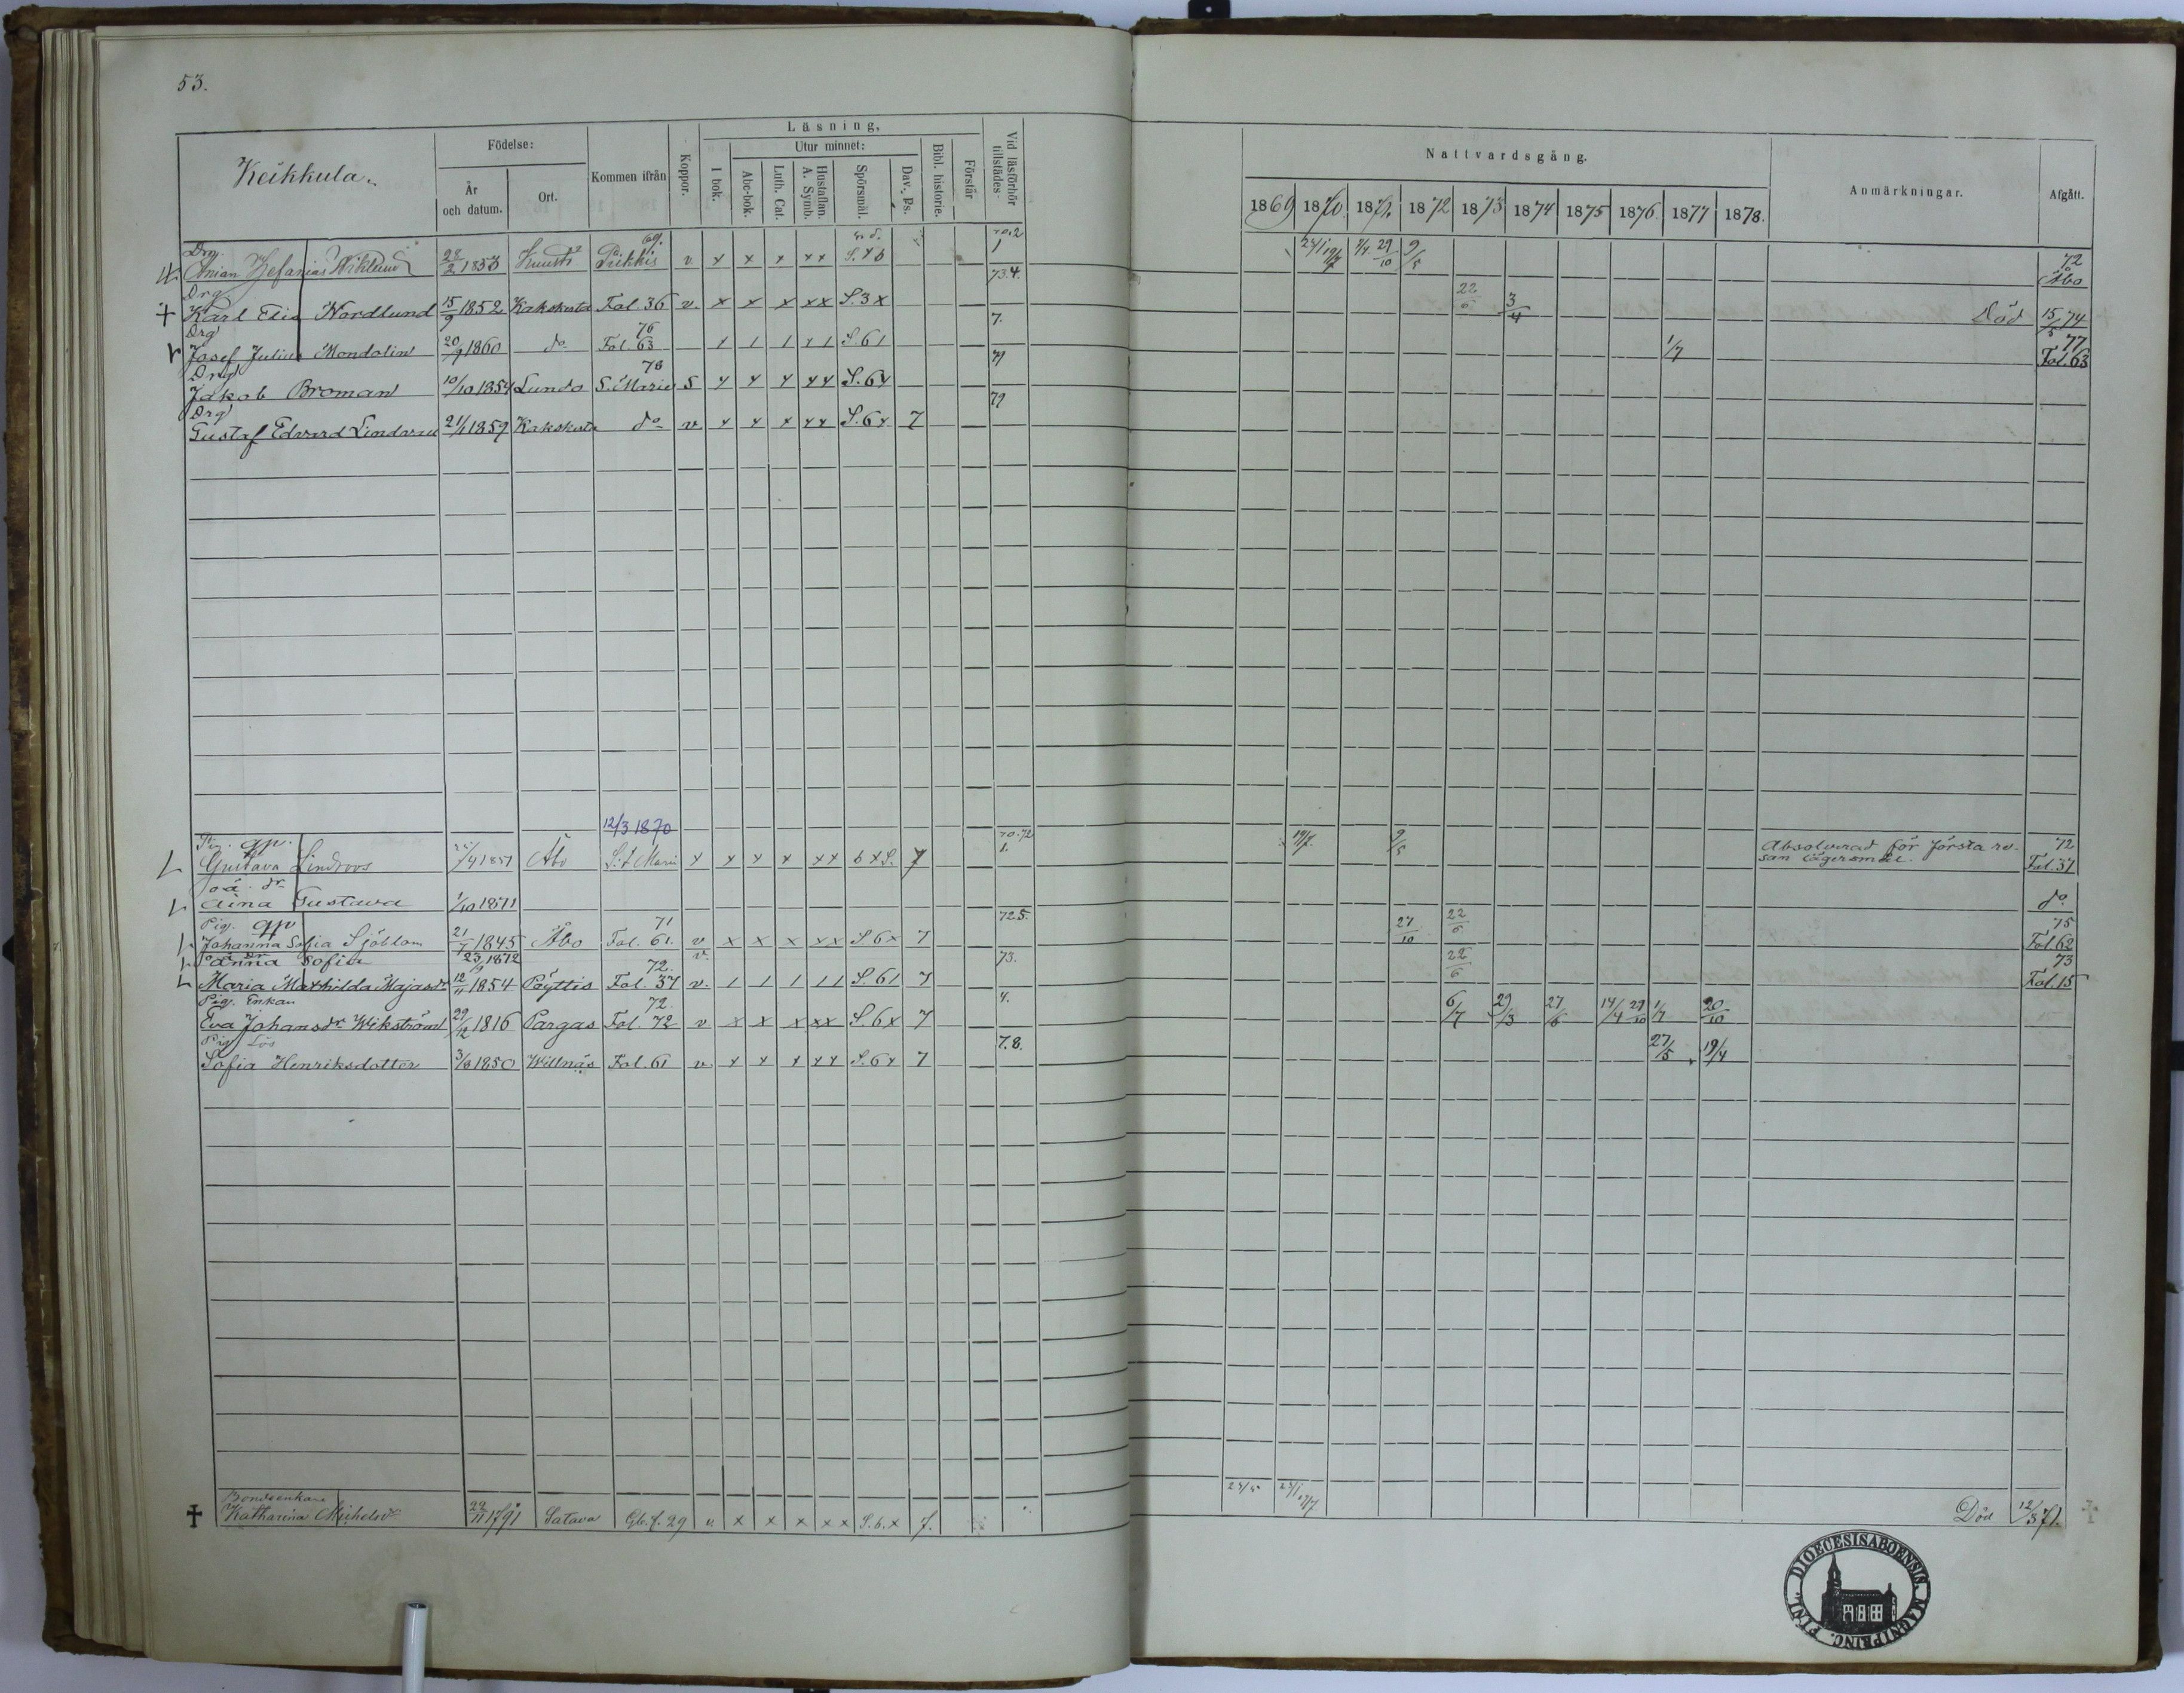 53.
Keikkula.
Födelse:
År och datum.
Ort.
Kommen ifrån
Koppor.
Läsning,
I bok.
Utur minnet:
Abc-bok.
Luth. Cat.
Hustaflan. A. Symb.
Spörsmål.
Dav. Ps.
Bibl. historie.
Förstår
Vid läsförhör tillstädes
Nattvardsgång.
1869 1870. 1871. 1872 1873 1874 1875 1876 1877 1878.
Anmärkningar.
Afgått.
Drg.
69.
70.2
Zefanias Wiklund 28/2 1853 Piikkis v x x x x x 1 9/5 72 Åbo
Drg
73.4.
Karl Elis Nordlund 15/9 1852 Kakskerta Fol. 36 v. x x x x x S. 3 x 22/6 3/4 Död 15/5 74
Drg
76
7.
Josef Julius Mondolin 20/9 1860 do Fol. 63 S. 61 1/7 77 Fol. 63
Drg
78
Jakob Broman 10/10 1854 Lundo S:t Marie S x x x x x S. 6x
Drg
Gustaf Edvard 21/1 1859 Kakskerta do v x x x x x S. 6x 7
12/3 1870
70.72
Gustava Lindroos 1851 Åbo S:t Marie x x x x x x 6 x S. 7 1. 19/7. 9/5 Absolverad för första re-
san lägersmål. 72 Fol. 37
oä. dr
Aina Gustava 1/10 1871 do
Pig. qv
71
72.5.
Johanna Sofia Sjöblom 21/7 1845 Åbo Fol. 61. v x x x x x S. 6x 7 27/10 22/6 75 Fol. 62
oä dr
Anna Sofia 23/9 1872 v.
72.
73.
Maria Mathilda Majasdr 12/11 1854 Pöyttis Fol. 37 v. 1 1 1 1 1 S. 61 7 22/6 73 Fol. 15
Pig. Enkan
72.
4.
Eva Johansdr Wikström 29/12 1816 Pargas Fol. 72 v x x x x x S. 6x 7 6/7 29/3 27/6 14/4 29/10 1/7 20/10
Pig Lös
7.8.
Sofia Henriksdotter 3/8 1850 Willnäs Fol. 61 v. x x x x x S. 6x 7 27/5 19/4
Bondeenkan
Katharina Michelsdr 22/11 1791 Satava Gb. f. 29 v. x x x x x S. 6. x 7. Död 12/3 71.
DIOECESIS ABOENSIS. MAGNI PRINC. FINL.